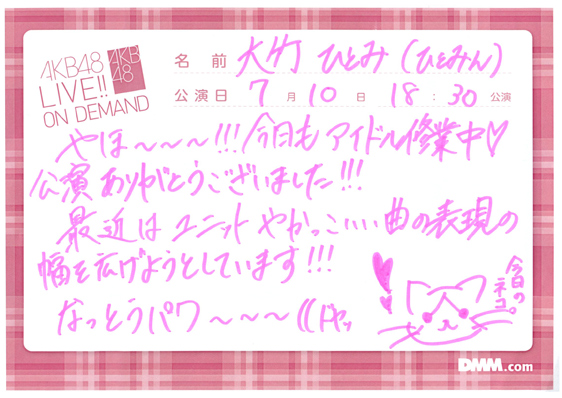 AKB48
LIVE!!
ON DEMAND
AKB
48
名前 大竹 ひとみ (ひとみん)
公演日 7月10日 18:30公演
やほ〜〜〜!!! 今日もアイドル修業中♡
公演ありがとうございました!!!
最近はユニットやかっこいい曲の表現の
幅を広げようとしています!!!
なっとうパワ〜〜〜((ドヤッ
今日の
ネコ。
DMM.com